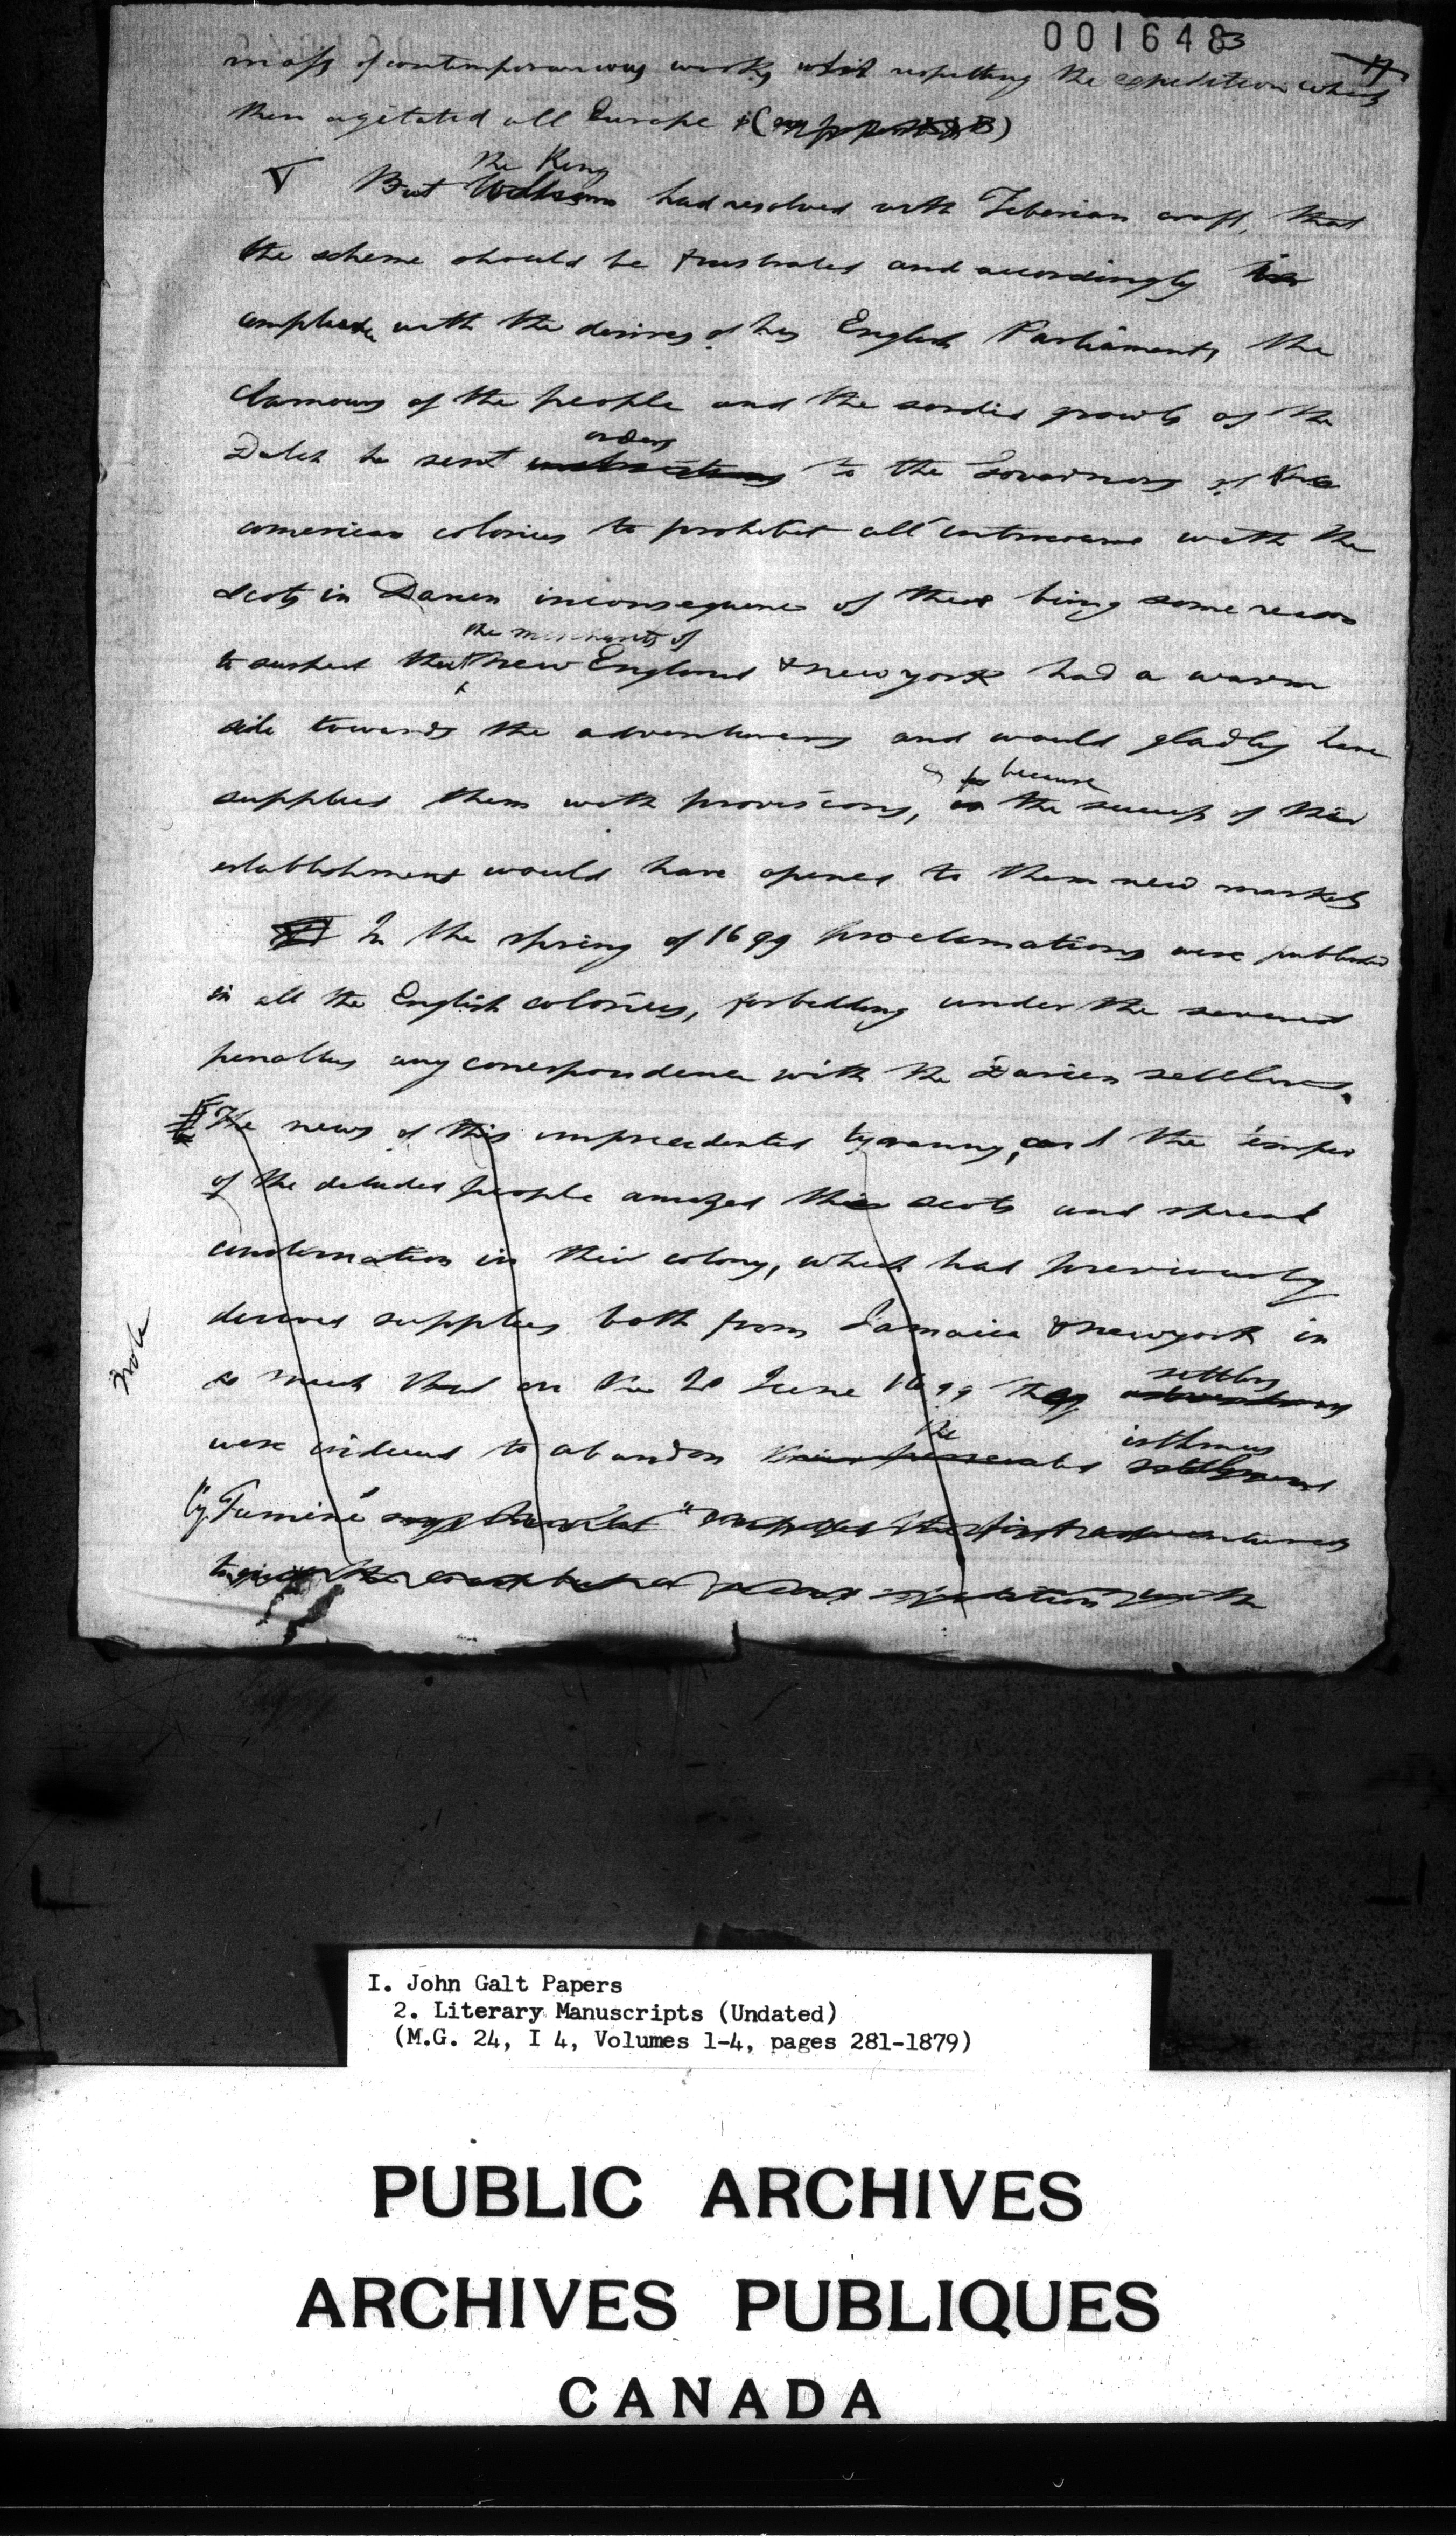 001648
mass of contemporaneous works respecting the expedition which
then agitated all Europe
the King
But William had resolved with Tiberian craft, that
the scheme should be frustrated and accordingly
with the desires of his English Parliaments, the
clamours of the people and the sordid growls of the
orders
Dutch he sent instructions to the Governors of the
american colonies to prohibit all intercourse with the
Scots in Darien inconsequence of there being some reason
the merchants of
to suspect that new England & new york had a warm
side towards the adventurers and would gladly have
because
supplied them with provisions, as the success of their
establishment would have opened to them new markets
In the spring of 1699 proclamations were published
in all the English colonies, forbidding under the severest
penalties any correspondence with the Darien settlers.
The news of this unprecedented tyranny, and the temper
of the deluded people amazed the scots and spread
consternation in their colony, which had previously
derived supplies both from Jamaica & newyork in
Note
settlers
so much that on the 20 June 1699 they adventurers
the isthmus
were induced to abandon their settlement
by Famine the first adventurers
with the
I. John Galt Papers
2. Literary Manuscripts (Undated)
(M.G. 24, I 4, Volumes 1-4, pages 281-1879)
PUBLIC ARCHIVES
ARCHIVES PUBLIQUES
CANADA